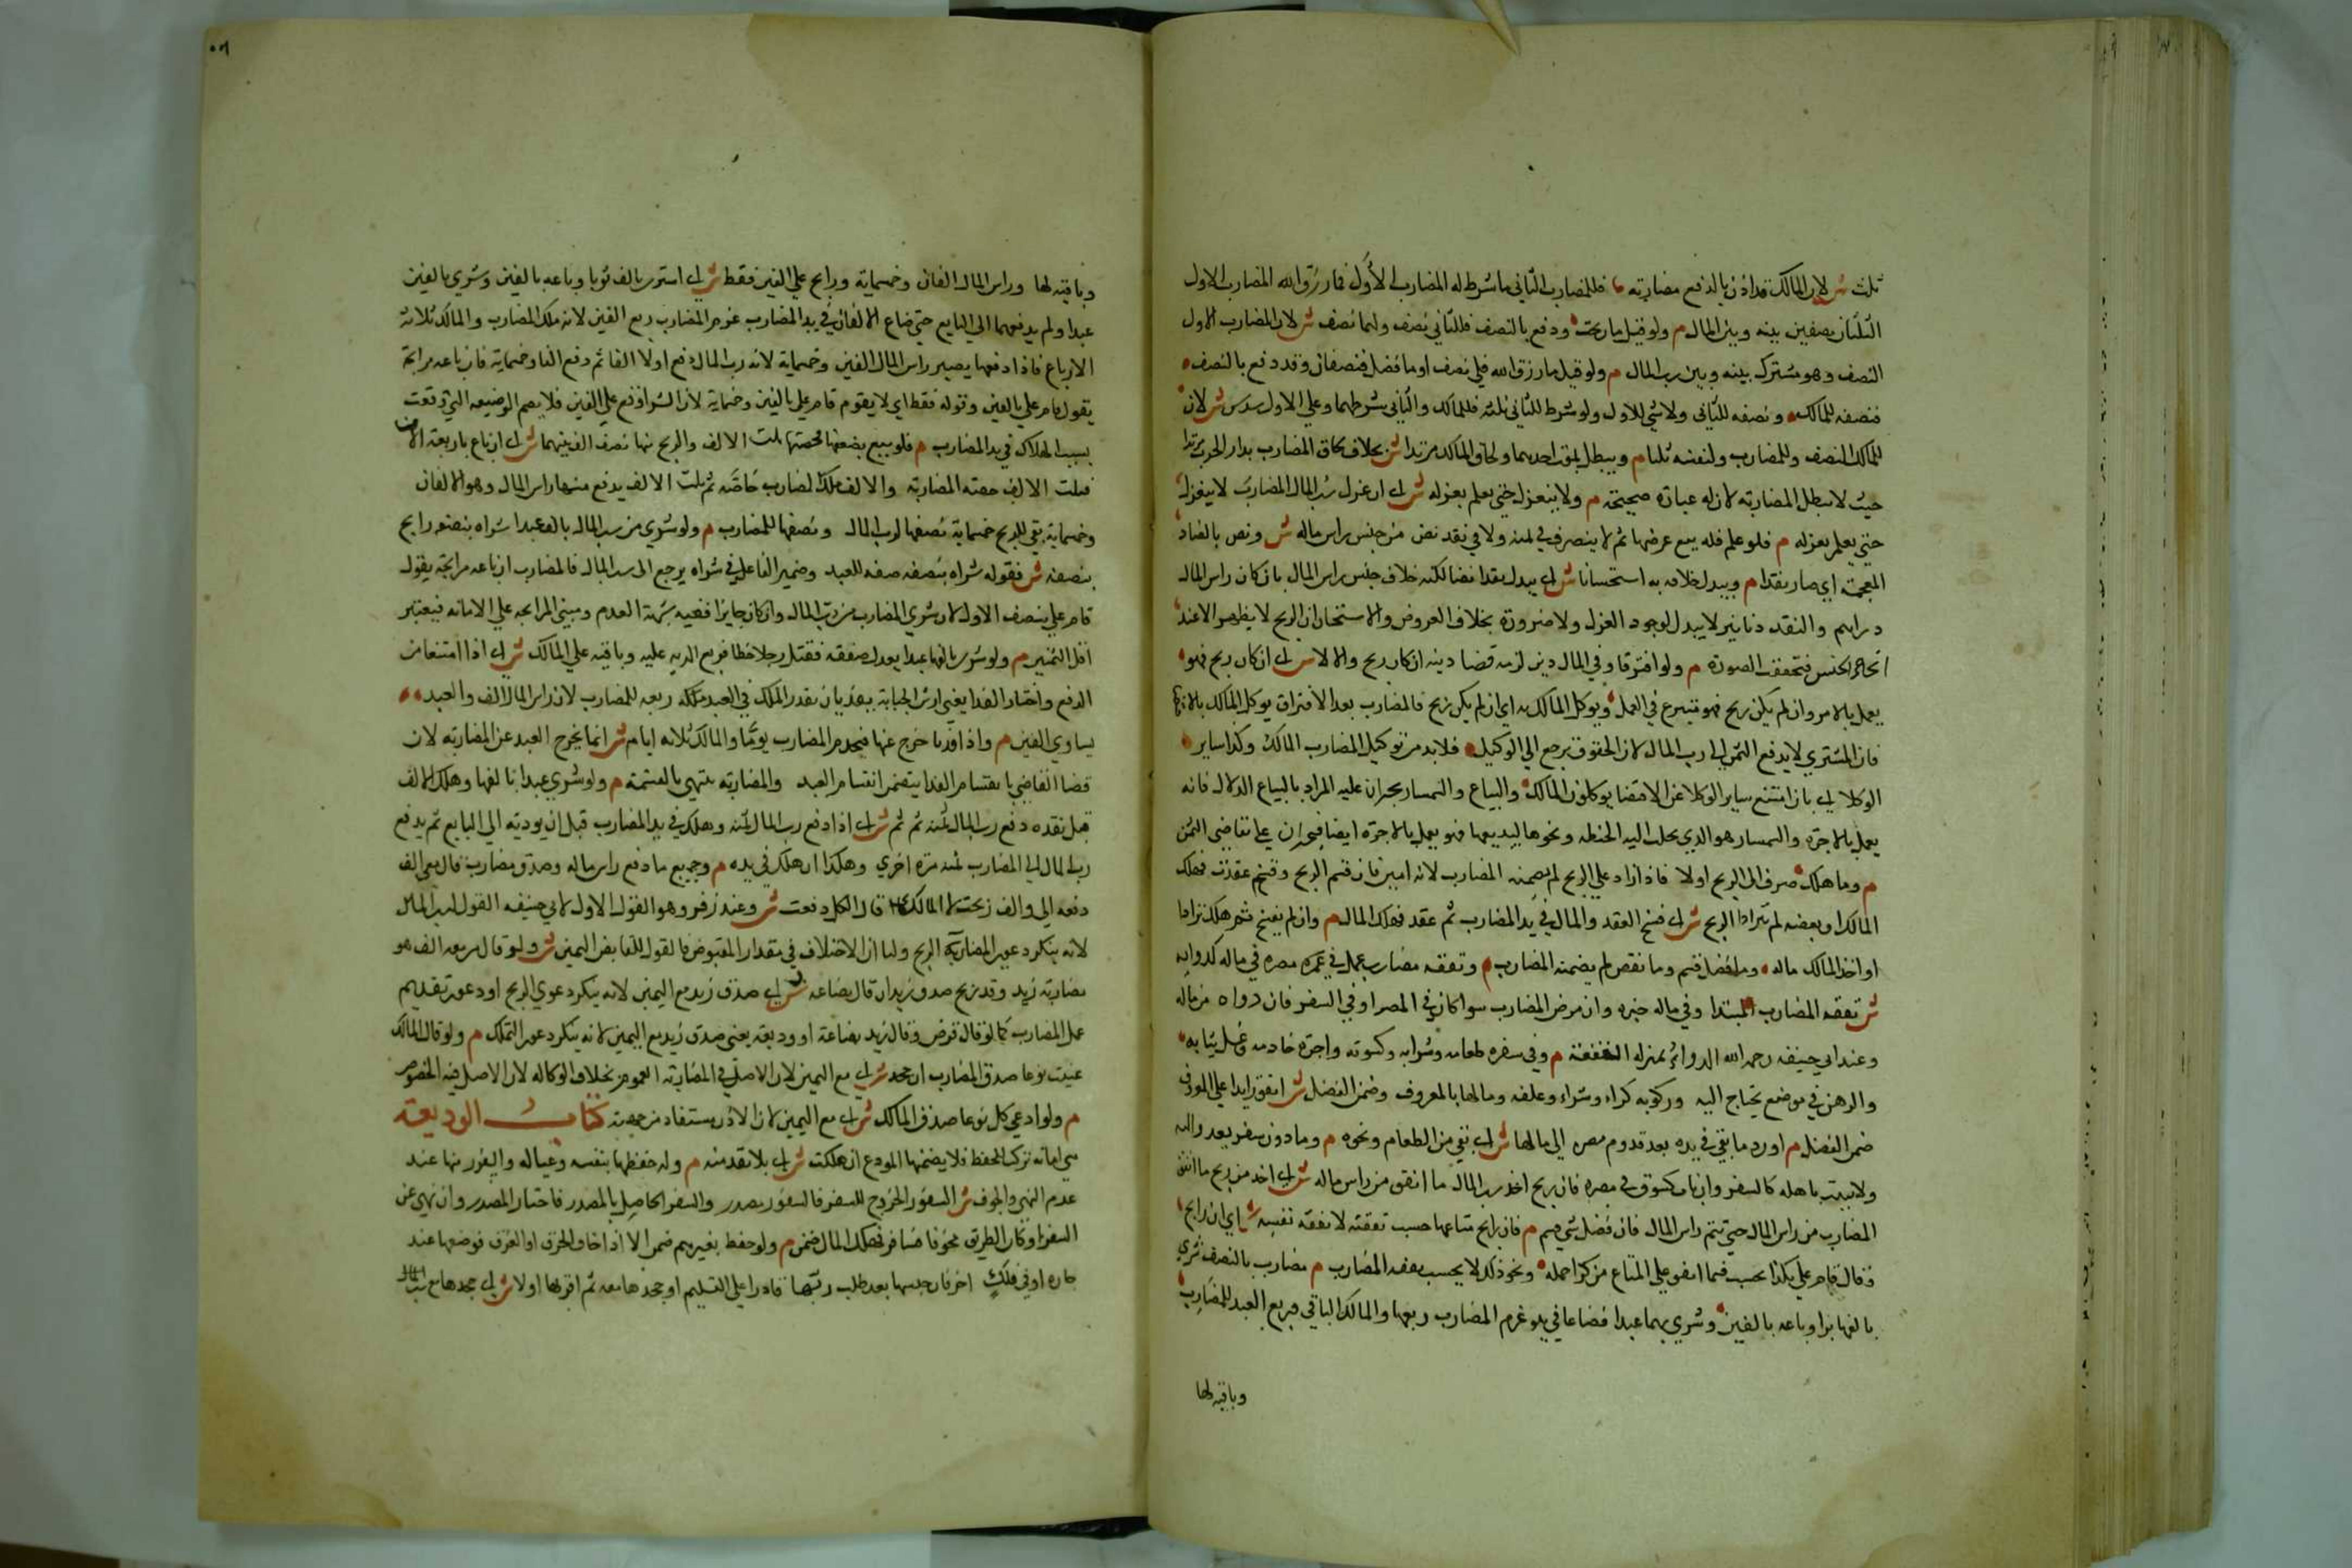 ثلث ش لان المالك قد اذن بالدفع مضاربة فللمضارب الثاني ما شرط له المضارب الاول فما رزق الله المضارب الاول
الثلثان نصفين بينه وبين المال م ولو قيل ما ربحت ودفع بالنصف فللثاني نصف ولهما نصف ش لان للمضارب الاول
النصف وهو مشترك بينه وبين رب المال م ولو قيل ما رزق الله فلي نصف او ما فضل فنصفان وقد دفع بالنصف
فنصفه للمالك ونصفه للثاني ولا شي للاول ولو شرط للثاني ثلثه فللمالك والثاني شرطهما وعلي الاول سدس ش لان
للمالك النصف وللمضارب ولنفسه ثلثا م ويبطل بموت احدهما ولحاق المالك مرتدا ش بخلاف لحاق المضارب بدار الحرب مرتدا
حيث لا تبطل المضاربة لان له عبارة صحيحة م ولا ينعزل حتي يعلم بعزله ش اي ان عزل رب المال المضارب لا ينعزل
حتي يعلم بعزله م فلو علم فله بيع عرضها ثم لا يتصرف في ثمنه ولا في نقد نض من جنس راس ماله ش ونض بالضاد
المعجمة اي صار نقدا م ويبدل خلافه به استحسانا ش اي يبدل نقدا نضا لكنه خلاف جنس راس المال بان كان راس المال
دراهم والنقد دنانير لا يبدل لوجود العزل ولا ضرورة بخلاف العروض والاستحسان ان الربح لا يظهر الا عند
اتحاد الجنس فتحققت الضرورة م ولو افترقا وفي المال دين لزمه قضا دينه ان كان ربح والا لا ش اي ان كان ربح فهو
يعمل بالاجر وان لم يكن ربح فهو متبرع في العمل ويوكل المالك به اي ان لم يكن ربح فالمضارب بعد الافتراق يوكل المالك
فان المشتري لا يدفع الثمن الي رب المال لان الحقوق يرجع الي الوكيل فلا بد من توكيل المضارب المالك وكذا ساير
الوكلا اي بان امتنع ساير الوكلا عن الاقتضا يوكلون المالك والبياع والسمسار يجبران عليه المراد بالبياع الدلال فانه
يعمل بالاجرة والسمسار هو الذي يجلب اليه الحنطة ونحوها ليبيعها فهو يعمل بالاجرة ايضا فيجبران علي تقاضي الثمن
م وما هلك صرف الي الربح اولا فاذا زاد علي الربح لم يضمنه المضارب لانه امين فان قسم الربح وفسخ عقدت فهلك
المالك او بعضه لم يترادا الربح ش اي فسخ العقد والمال في يد المضارب ثم عقد فهلك المال م وان لم يفسخ ثم هلك ترادا
او اخذ المالك ماله وما فضل قسم وما نقص لم يضمنه المضارب م ونفقة مضارب عمل في مصره في ماله كدوايه
ش نفقة المضارب مبتدا وفي ماله خبره وان مرض المضارب سوا كان في المصر او في السفر فان دواه من ماله
وعند ابي حنيفه رحمه الله الدوا بمنزلة النفقة م وفي سفره طعامه وشرابه وكسوته واجرة خادمه وغسل ثيابه
والدهن في موضع يحتاج اليه وركوبه كراء وشراء وعلفه ومالها بالمعروف وضمن الفضل ش انفق زايدا علي المعروف
ضمن الفضل م ورد ما بقي في يده بعد قدوم مصره الي مالها ش اي بقي من الطعام ونحوه م وما دون سفر يعدو اليه
ولا يبيت باهله كالسفر وان بات كسوق مصره فان ربح اخذ رب المال ما انفق من راس ماله ش اي اخذ من ربح ما انفق
المضارب من راس المال حتي يتم راس المال فان فضل شي قسم م فان رابح متاعها حسب نفقته لا نفقة نفسه ش اي ان رابح
وقال قام علي بكذا يحسب فيما انفق علي المتاع من كرا حمله ونحو ذلك لا يحسب نفقة المضارب م مضارب بالنصف شري
بالفها بزا وباعه بالفين وشري بهما عبدا فضاعا في يده غرم المضارب ربعها والمالك الباقي فربع العبد للمضارب
وباقيه لها
وباقيه لها وراس المال الفان وخمسماية ورابح علي الفين فقط ش اي اشتري بالف ثوبا وباعه بالفين وشري بالفين
عبدا ولم يدفعهما الي البايع حتي ضاع الالفان في يد المضارب غرم المضارب ربع الفين لانه ملك المضارب والمالك ثلاثة
الارباع فاذا دفعها يصير راس المال الفين وخمسماية لانه رب المال دفع اولا الفا ثم دفع الفا وخمسماية فان باعه مرابحة
يقول قام علي بالفين وقوله فقط اي لا يقوم قام علي بالفين وخمسماية لان الشرا وقع علي الفين فلا يضم الوضيعة التي وقعت
بسبب الهلاك في يد المضارب م فلو بيع بضعفهما فحصتها ثلث الالاف والربح منها نصف الف بينهما ش اي ان باع باربعة الاف
فثلث الالاف حصة المضاربة والالف ملك المضارب خاصة ثم ثلث الالاف يدفع منها راس المال وهو الالفان
وخمسماية بقي للربح خمسماية نصفها لرب المال ونصفها للمضارب م ولو شري من رب المال بالف عبدا شراه بنصفه رابح
بنصفه ش فقوله شراه بنصفه صفة للعبد وضمير الفاعل في شراه يرجع الي رب المال فالمضارب ان باعه مرابحة يقول
قام علي بنصف الاول لان شري المضارب من رب المال وان كان جايزا ففيه شبهة العدم ومبني المرابحة علي الامانة فيعتبر
اقل الثمنين م ولو شري بالفها عبدا يعدل ضعفه فقتل رجلا خطا فربع الدية عليه وباقيه علي المالك ش اي اذا امتنعا من
الدفع واختار الفدا يعني ارش الجناية يفديان بقدر الملك في العبد ملكه ربعه للمضارب لان راس المال الف والعبد
يساوي الفين م واذا فديا خرج عنها فيخدم المضارب يوما والمالك ثلاثة ايام ش انما يخرج العبد عن المضاربة لان
قضا القاضي بانقسام الفدا يتضمن انقسام العبد والمضاربة تنتهي بالقسمة م ولو شري عبدا بالفها وهلك الالف
قبل نقده دفع رب المال ثمنه ثم ثم ش اي اذا دفع رب المال ثمنه وهلك في يد المضارب قبل ان يوديه الي البايع ثم يدفع
رب المال الي المضارب ثمنه مرة اخري وهكذا ان هلك في يده م وجميع ما دفع راس ماله وصدق مضارب قال معي الف
دفعه الي والف ربحت لا المالك لو قال الكل دفعت ش وعند زفر وهو القول الاول لابي حنيفه القول لرب المال
لانه ينكر دعوي المضارب الربح ولنا ان الاختلاف في مقدار المقبوض فالقول للقابض اليمين ش ولو قال من معه الف هو
مضاربة زيد وقد ربح صدق زيد ان قال بضاعة ش اي صدق زيد مع اليمين لانه ينكر دعوي الربح او دعوي تقديم
عمل المضارب كما لو قال قرض وقال زيد بضاعة او وديعة يعني صدق زيد مع اليمين لانه ينكر دعوي التملك م ولو قال المالك
عينت نوعا صدق المضارب ان جحد ش اي مع اليمين لان الاصل في المضاربة العموم بخلاف الوكالة لان الاصل فيه الخصوص
م ولو ادعي كل نوعا صدق المالك ش اي مع اليمين لان الاذن يستفاد من جهته كتاب الوديعة
هي امانة تركت للحفظ فلا يضمنها المودع ان هلكت ش اي بلا تعد منه م وله حفظها بنفسه وعياله والسفر بها عند
عدم النهي والخوف ش السفور الخروج للسفر فالسفور مصدر والسفر الحاصل بالمصدر فاختار المصدر وان نهي عن
السفر او كان الطريق مخوفا فسافر فهلك المال ضمن م ولو حفظ بغيرهم ضمن الا اذا خاف الحرق او الغرق فوضعها عند
جاره او في فلك اخر فان حبسها بعد طلب ربها قادرا علي التسليم او جحدها معه ثم اقر بها اولا ش اي جحدها مع رب المال